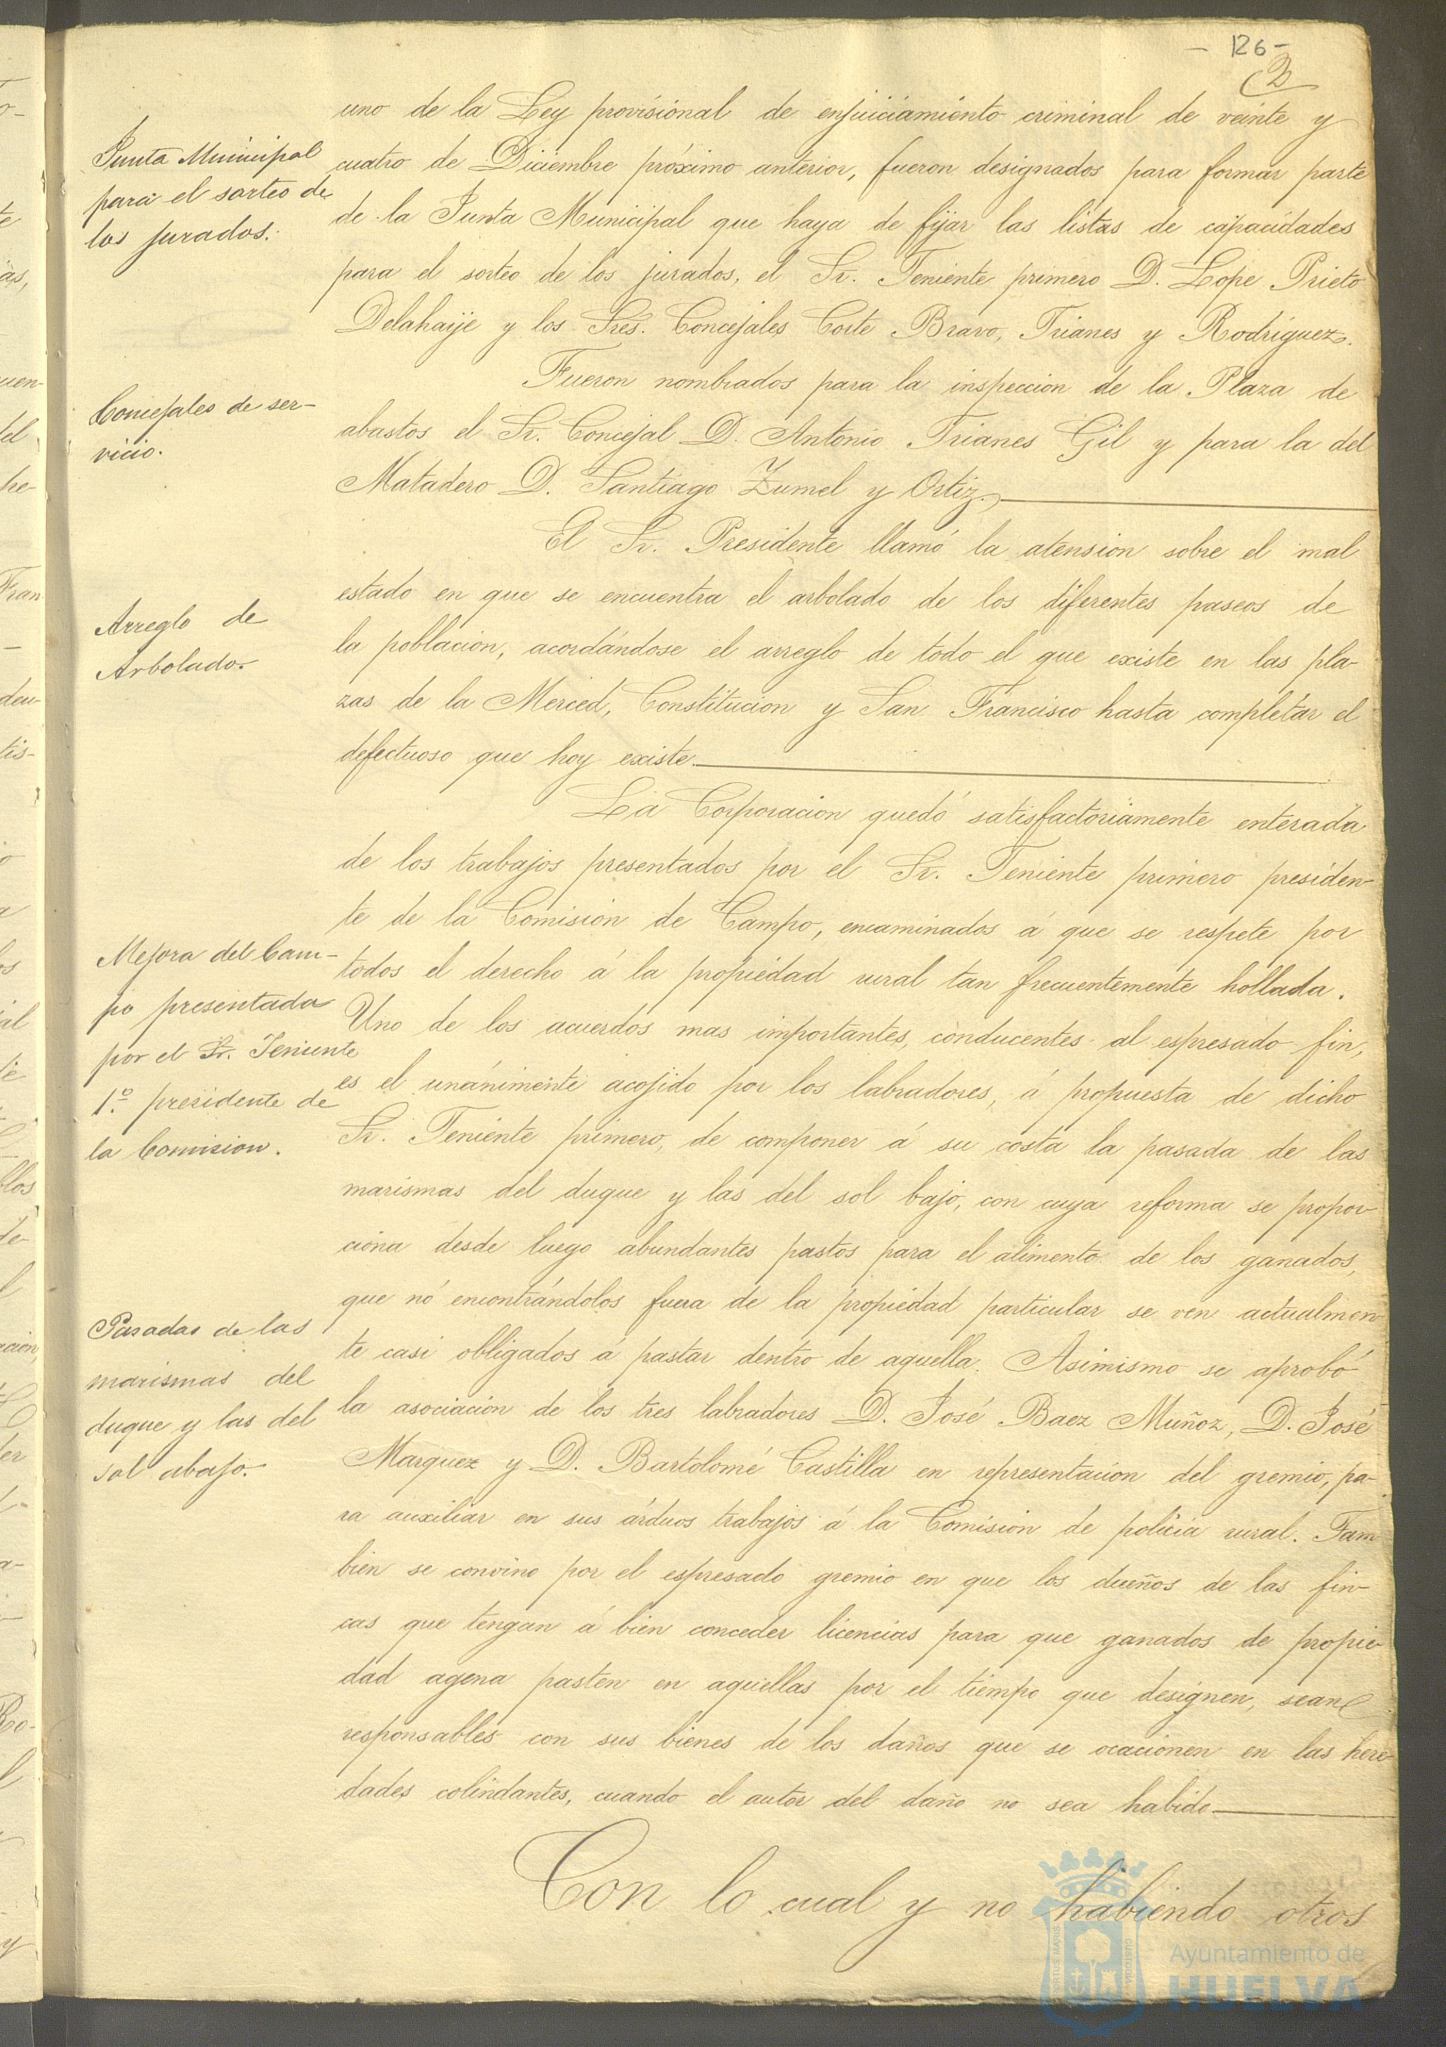 - 126 -
uno de la Ley provisional de enjuiciamiento criminal de veinte y
Junta Municipal
para el sorteo de
los jurados.
cuatro de Diciembre próximo anterior, fueron designados para formar parte
de la Junta Municipal que haya de fijar las listas de capacidades
para el sorteo de los jurados, el Sr. Teniente primero D. Lope Prieto
Delahaije y los Sres. Concejales Corte Bravo, Trianes y Rodriguez.
Concejales de ser-
vicio.
Fueron nombrados para la inspeccion de la Plaza de
abastos el Sr. Concejal D. Antonio Trianes Gil y para la del
Matadero D. Santiago Zumel y Ortiz.
Arreglo de
Arbolado.
El Sr. Presidente llamó la atension sobre el mal
estado en que se encuentra el arbolado de los diferentes paseos de
la poblacion, acordándose el arreglo de todo el que existe en las pla-
zas de la Merced, Constitucion y San Francisco hasta completar el
defectuoso que hoy existe.
Mejora del Cam-
po presentada
por el Sr. Teniente
1.º presidente de
la Comision.
La Corporacion quedó satisfactoriamente enterada
de los trabajos presentados por el Sr. Teniente primero presiden-
te de la Comision de Campo, encaminados á que se respete por
todos el derecho á la propiedad rural tan frecuentemente hollada.
Uno de los acuerdos mas importantes, conducentes al espresado fin,
es el unánimente acojido por los labradores, á propuesta de dicho
Sr. Teniente primero, de componer á su costa la pasada de las
marismas del duque y las del sol bajo, con cuya reforma se propor-
ciona desde luego abundantes pastos para el alimento de los ganados,
que nó encontrándolos fuera de la propiedad particular se ven actualmen-
Pasadas de las
marismas del
duque y las del
sol abajo.
te casi obligados á pastar dentro de aquella. Asimismo se aprobó
la asociacion de los tres labradores D. José Baez Muñoz, D. José
Marquez y D. Bartolomé Castilla en representacion del gremio, pa-
ra auxiliar en sus árduos trabajos á la Comision de policia rural. Tam
bien se convino por el espresado gremio en que los dueños de las fin-
cas que tengan á bien conceder licencias para que ganados de propie-
dad agena pasten en aquellas por el tiempo que designen, sean
responsables con sus bienes de los daños que se ocacionen en las here-
dades colindantes, cuando el autor del daño no sea habido.
Con lo cual y no habiendo otros
Ayuntamiento de
HUELVA